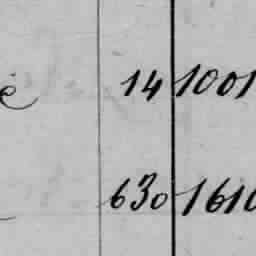 14 1001
630 1610